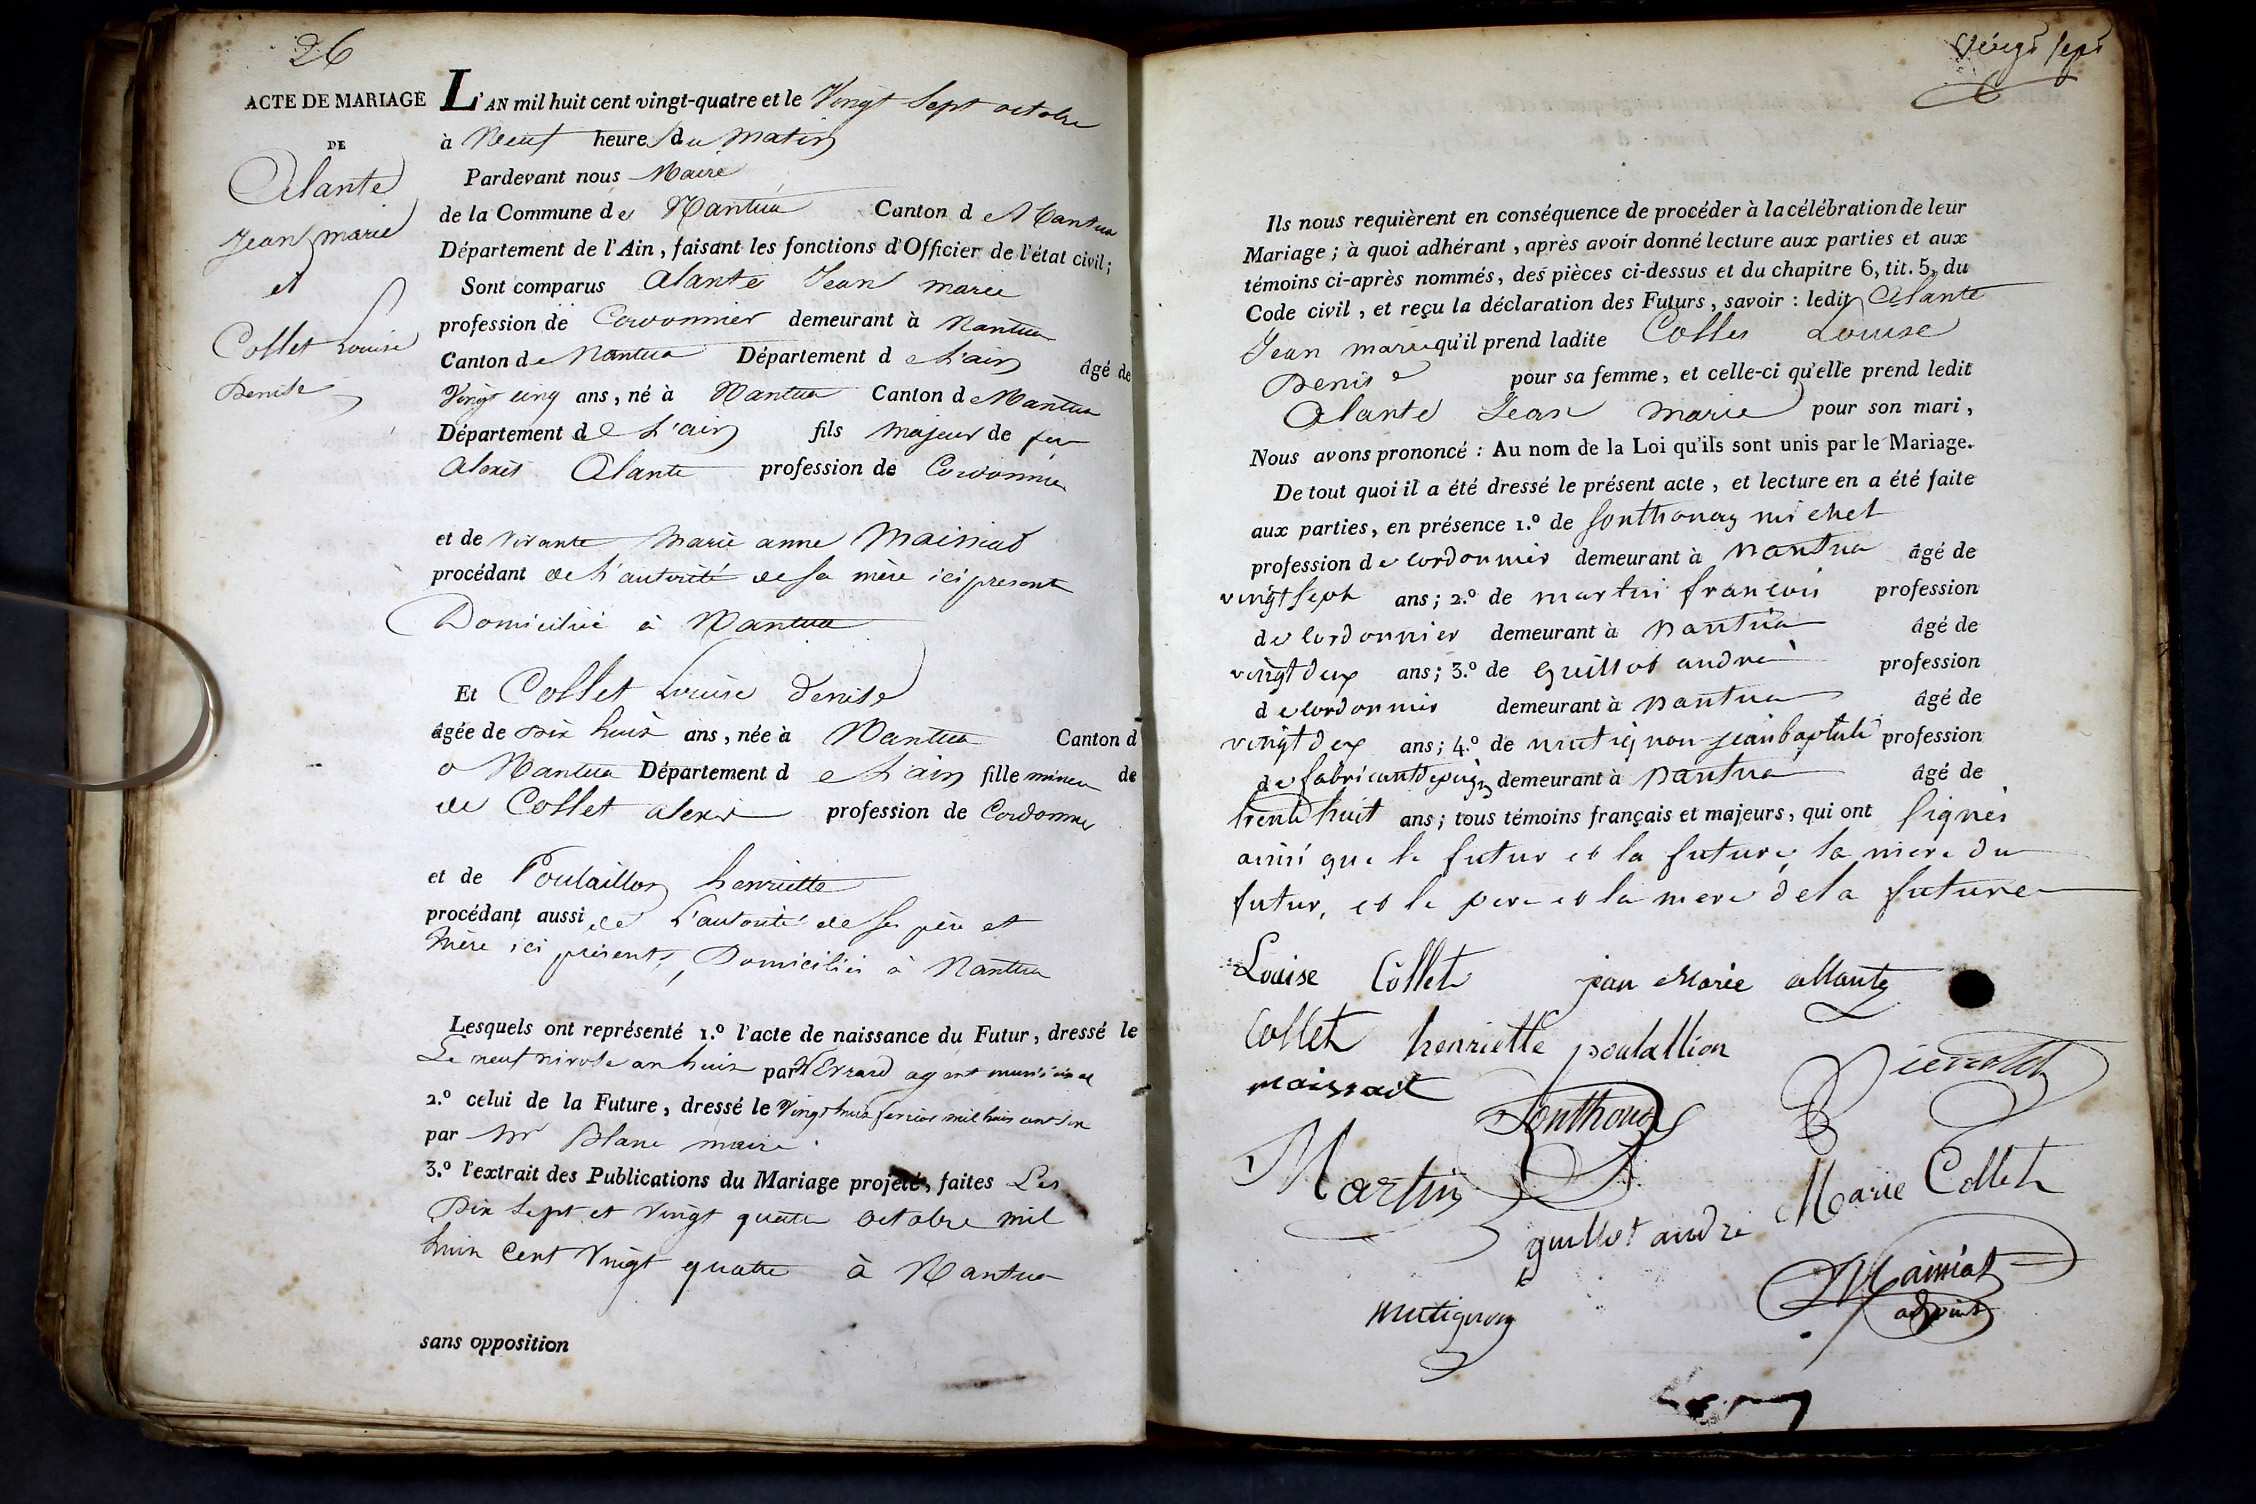 26
ACTE DE MARIAGE
DE
Alante
Jean marie
et
Collet Louise
Denise
L'AN mil huit cent vingt-quatre et le Vingt Sept octobre
à Neuf heures du Matin
Pardevant nous Maire
de la Commune de Nantua Canton de Nantua
Département de l'Ain, faisant les fonctions d'Officier de l'état civil;
Sont comparus Alante Jean marie
profession de Cordonnier demeurant à Nantua
Canton de Nantua Département de L'ain âgé de
Vingt cinq ans, né à Nantua Canton de Nantua
Département de L'ain fils majeur de feu
Alexis Alante profession de Cordonnier
et de vivante Marie anne Maissiat
procédant de L'autorité de sa mère ici present
Domicilié à Nantua
Et Collet Louise denise
âgée de Dix huit ans, née à Nantua Canton d
e Nantua Département de L'ain fille mineu de
de Collet alexis profession de Cordonnier
et de Poulaillon henriette
procédant aussi de L'autorité de ses père et
Mère ici présents, Domiciliés à Nantua
Lesquels ont représenté 1.º l'acte de naissance du Futur, dressé le
Le neuf nivose an huit par Evrard agent municipal
2.º celui de la Future, dressé le Vingt huit fevrier mil huit cent six
par Mr Blanc maire
3.º l'extrait des Publications du Mariage projeté, faites Les
Dix Sept et Vingt quatre octobre mil
huit Cent Vingt quatre à Nantua
sans opposition
Vingt Sept
Ils nous requièrent en conséquence de procéder à la célébration de leur
Mariage; à quoi adhérant, après avoir donné lecture aux parties et aux
témoins ci-après nommés, des pièces ci-dessus et du chapitre 6, tit. 5, du
Code civil, et reçu la déclaration des Futurs, savoir: ledit Alante
Jean marie qu'il prend ladite Collet Louise
Denise pour sa femme, et celle-ci qu'elle prend ledit
Alante Jean Marie pour son mari,
Nous avons prononcé: Au nom de la Loi qu'ils sont unis par le Mariage.
De tout quoi il a été dressé le présent acte, et lecture en a été faite
aux parties, en présence 1.º de Sonthonay michel
profession de cordonnier demeurant à Nantua âgé de
vingt sept ans; 2.º de martin françois profession
de cordonnier demeurant à Nantua âgé de
vingt deux ans; 3.º de Guillot andré profession
de cordonnier demeurant à Nantua âgé de
vingt deux ans; 4.º de mutignon jean baptiste profession
de fabricant de peignes demeurant à Nantua âgé de
trente huit ans; tous témoins français et majeurs, qui ont signés
ainsi que le futur et la future, la mere du
futur, et le pere et la mere de la future
Louise Collet jean Marie allante
Collet henriette poulallion
maissiat Sonthonay Pierrottet
Martin Marie Collet
guillot andré
Maissiat
mutignon adjoint